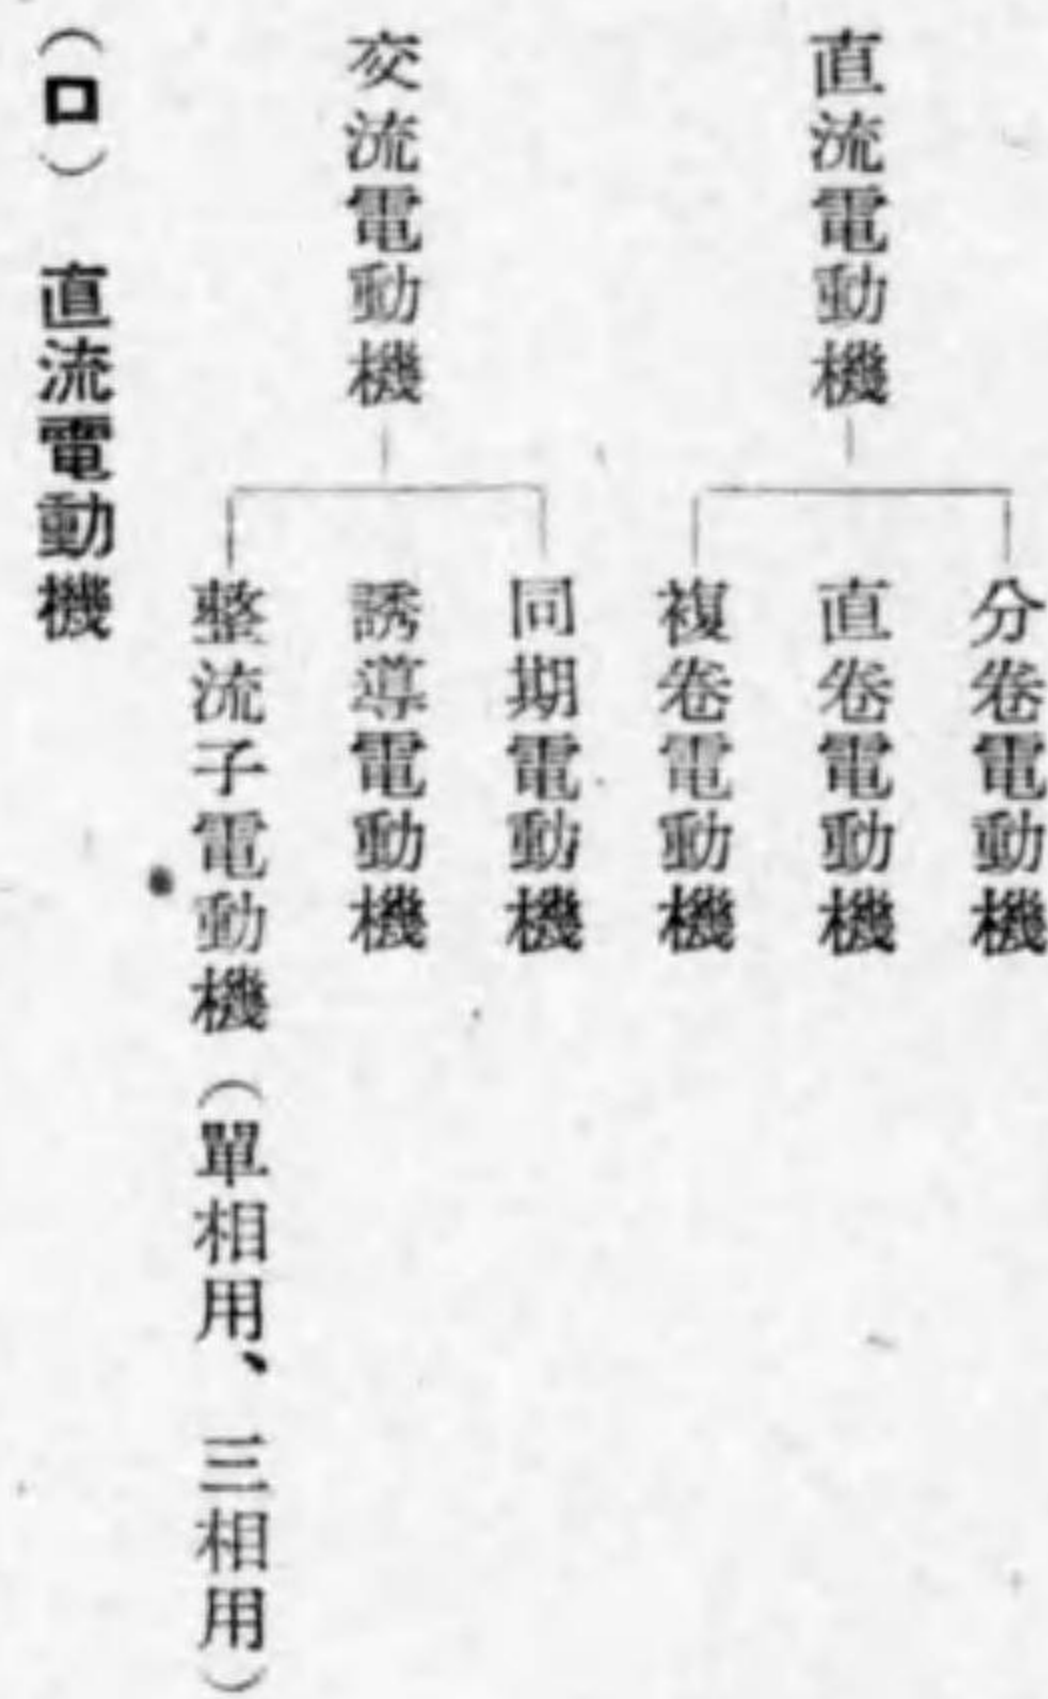 直流電動機
分卷電動機
直卷電動機
複卷電動機
交流電動機
同期電動機
誘導電動機
整流子電動機(單相用、三相用)
(ロ) 直流電動機